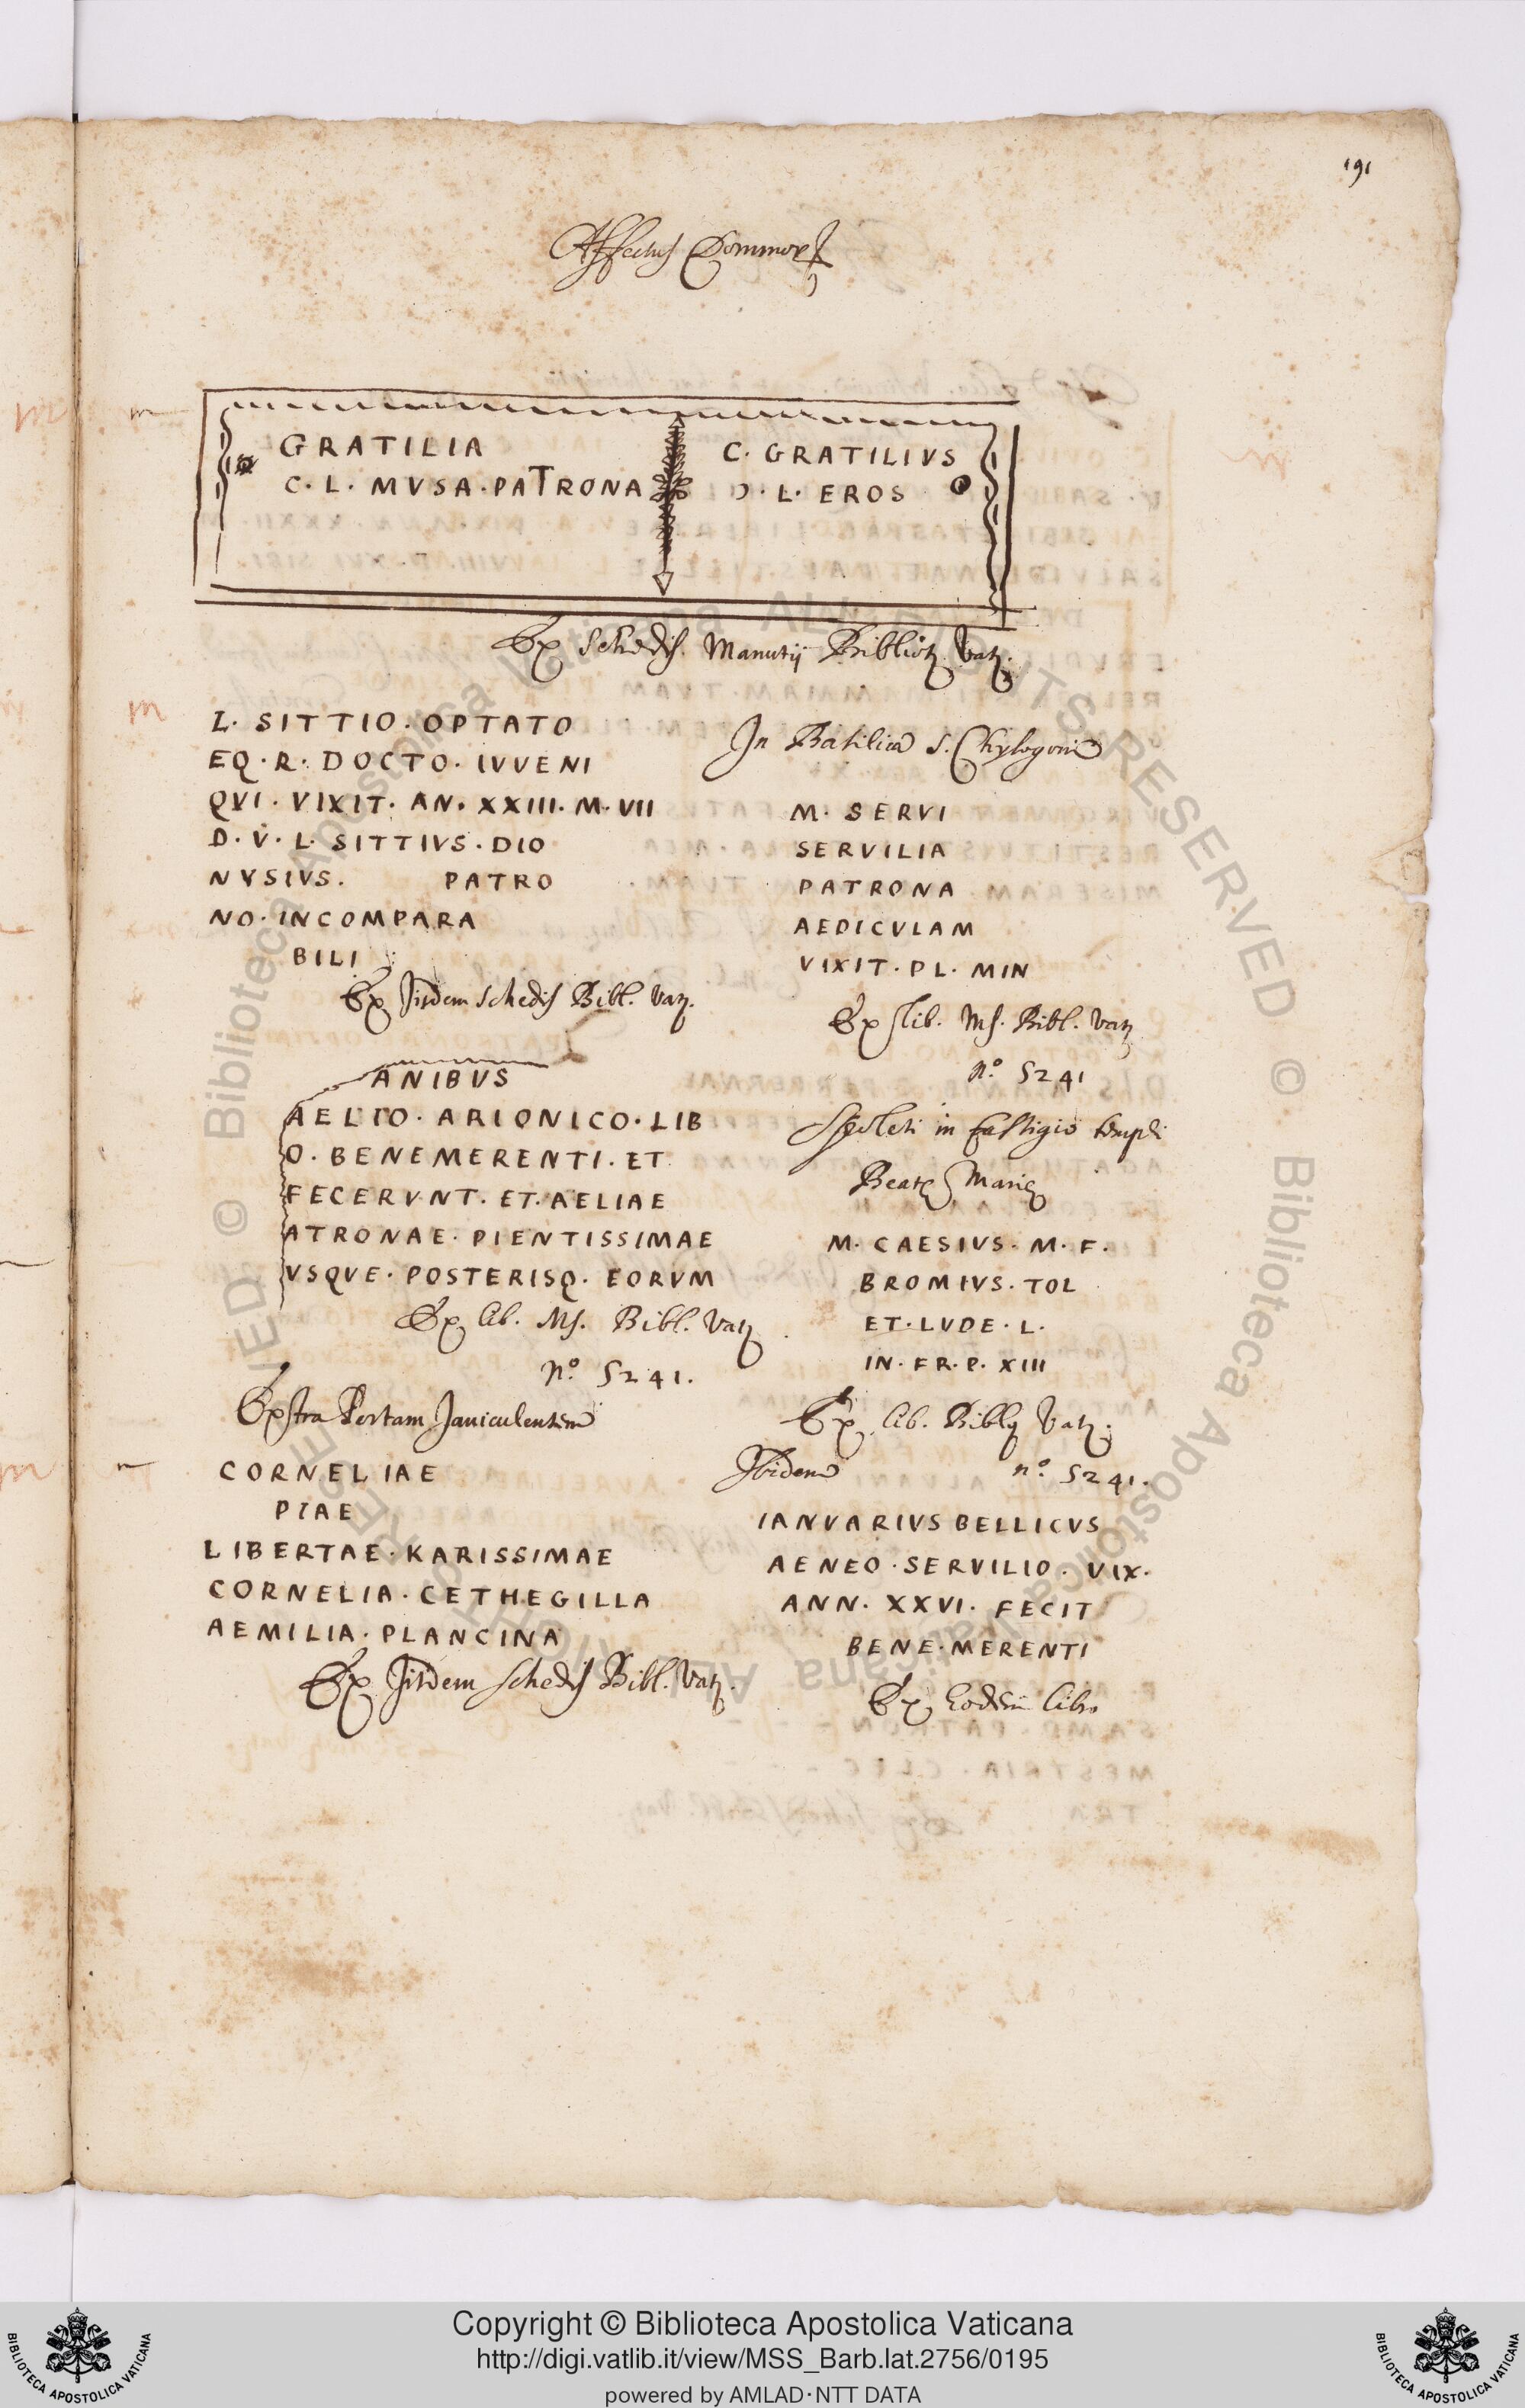 191
Affectus Dominor
GRATILIA
C. L. MVSA. PATRONA
C. GRATILIVS
Ɔ. L. EROS
Ex Schedis. Manutij Biblioth. Vat.
L. SITTIO. OPTATO
EQ. R. DOCTO. IVVENI
QVI. VIXIT. AN. XXIII. M. VII
D. V. L. SITTIVS. DIO
NVSIVS. PATRO
NO. INCOMPARA
BILI
Ex Iisdem schedis Bibl. Vat.
ANIBVS
AELIO. ARIONICO. LIB
O. BENEMERENTI. ET
FECERVNT. ET. AELIAE
ATRONAE. PIENTISSIMAE
VSQVE. POSTERISQ. EORVM
Ex lib. Ms. Bibl. Vat
n.º 5241.
Extra Portam Janiculensem
CORNELIAE
PIAE
LIBERTAE. KARISSIMAE
CORNELIA. CETHEGILLA
AEMILIA. PLANCINA
Ex Iisdem schedis Bibl. Vat.
In Basilica S. Chrysogoni
M. SERVI
SERVILIA
PATRONA
AEDICVLAM
VIXIT. PL. MIN
Ex lib. Ms. Bibl. Vat
n.º 5241
Spoleti in fastigio templi
Beatę Marię
M. CAESIVS. M. F.
BROMIVS. TOL
ET. LVDE. L.
IN. FR. P. XIII
Ex lib. Vat.
n.º 5241.
Ibidem
IANVARIVS BELLICVS
AENEO. SERVILIO. VIX.
ANN. XXVI. FECIT
BENE. MERENTI
Ex Eodem libro
Copyright © Biblioteca Apostolica Vaticana
http://digi.vatlib.it/view/MSS_Barb.lat.2756/0195
powered by AMLAD·NTT DATA
BIBLIOTECA APOSTOLICA VATICANA
BIBLIOTECA APOSTOLICA VATICANA